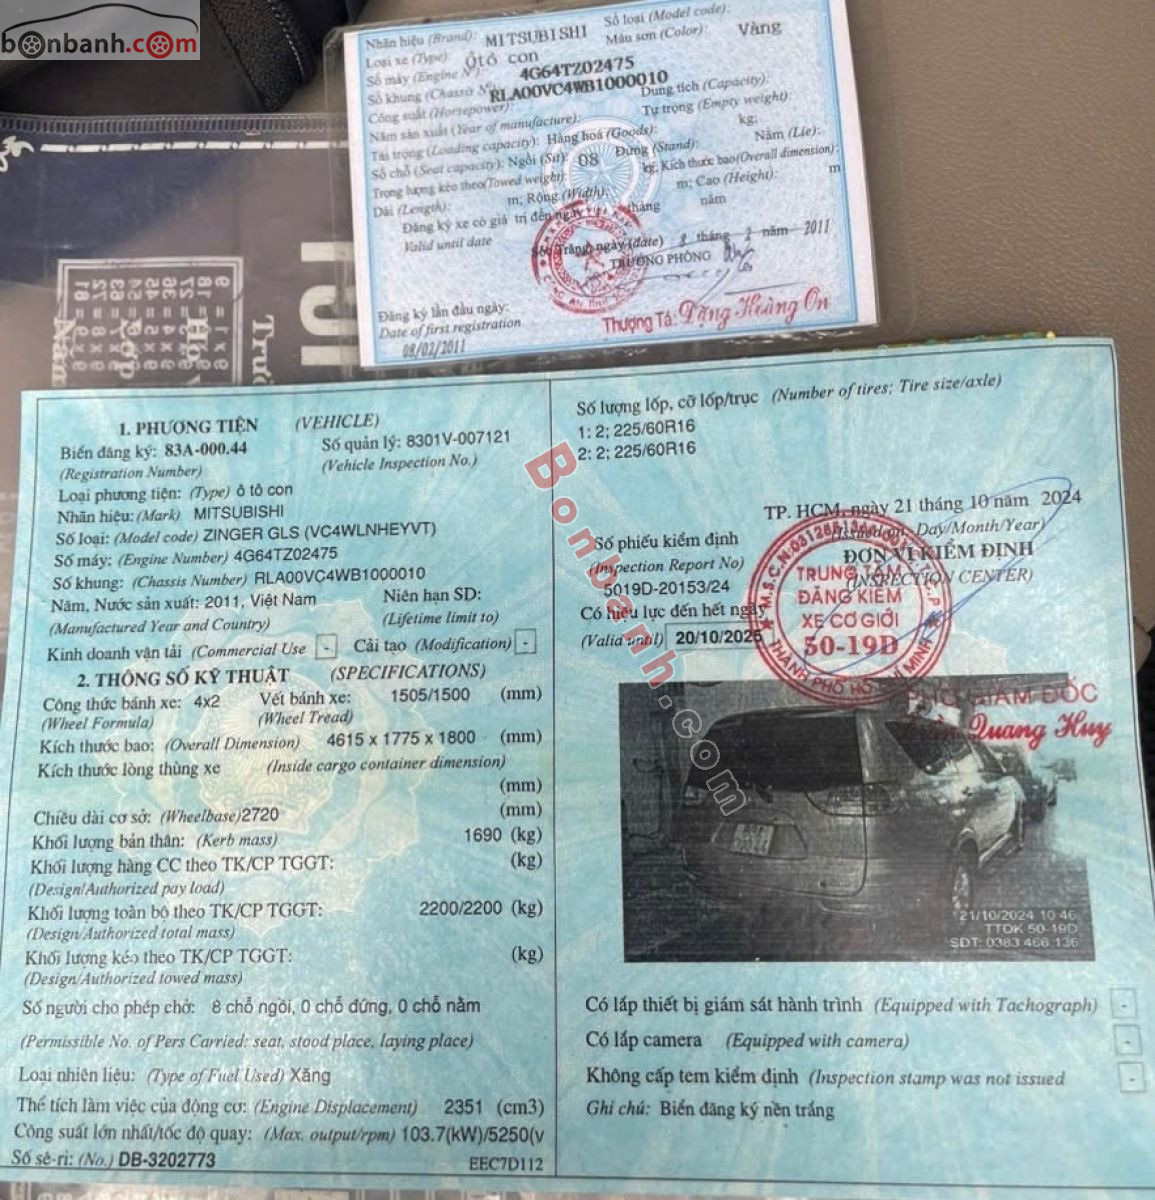 bonbanh.com
Nhãn hiệu (Brand): MITSUBISHI Số loại (Model code):
Loại xe (Type) Ôtô con Màu sơn (Color): Vàng
Số máy (Engine N°): 4G64TZ02475
Số khung (Chassis N°): RLA00VC4WB1000010
Công suất (Horsepower): Dung tích (Capacity):
Năm sản xuất (Year of manufacture): Tự trọng (Empty weight):
Tải trọng (Loading capacity): Hàng hoá (Goods): kg:
Số chỗ (Seat capacity): Ngồi (Sit): 08 Đứng (Stand): Nằm (Lie):
Trọng lượng kéo theo(Towed weight): kg; Kích thước bao(Overall dimension):
Dài (Length): m; Rộng (Width): m; Cao (Height): m
Đăng ký xe có giá trị đến ngày tháng năm
Valid until date
Sóc Trăng, ngày (date) 8 tháng 2 năm 2011
TRƯỞNG PHÒNG
Đăng ký lần đầu ngày:
Date of first registration
08/02/2011
Thượng Tá: Đặng Hoàng Ơn
1. PHƯƠNG TIỆN (VEHICLE)
Biển đăng ký: 83A-000.44 Số quản lý: 8301V-007121
(Registration Number) (Vehicle Inspection No.)
Loại phương tiện: (Type) ô tô con
Nhãn hiệu: (Mark) MITSUBISHI
Số loại: (Model code) ZINGER GLS (VC4WLNHEYVT)
Số máy: (Engine Number) 4G64TZ02475
Số khung: (Chassis Number) RLA00VC4WB1000010
Năm, Nước sản xuất: 2011, Việt Nam Niên hạn SD:
(Manufactured Year and Country) (Lifetime limit to)
Kinh doanh vận tải (Commercial Use - Cải tạo (Modification) -
2. THÔNG SỐ KỸ THUẬT (SPECIFICATIONS)
Công thức bánh xe: 4x2 Vết bánh xe: 1505/1500 (mm)
(Wheel Formula) (Wheel Tread)
Kích thước bao: (Overall Dimension) 4615 x 1775 x 1800 (mm)
Kích thước lòng thùng xe (Inside cargo container dimension)
(mm)
Chiều dài cơ sở: (Wheelbase)2720 (mm)
Khối lượng bản thân: (Kerb mass) 1690 (kg)
Khối lượng hàng CC theo TK/CP TGGT: (kg)
(Design/Authorized pay load)
Khối lượng toàn bộ theo TK/CP TGGT: 2200/2200 (kg)
(Design/Authorized total mass)
Khối lượng kéo theo TK/CP TGGT: (kg)
(Design/Authorized towed mass)
Số người cho phép chở: 8 chỗ ngồi, 0 chỗ đứng, 0 chỗ nằm
(Permissible No. of Pers Carried: seat, stood place, laying place)
Loại nhiên liệu: (Type of Fuel Used) Xăng
Thể tích làm việc của động cơ: (Engine Displacement) 2351 (cm3)
Công suất lớn nhất/tốc độ quay: (Max. output/rpm) 103.7(kW)/5250(v
Số sê-ri: (No.) DB-3202773 EEC7D112
Số lượng lốp, cỡ lốp/trục (Number of tires; Tire size/axle)
1: 2; 225/60R16
2: 2; 225/60R16
TP. HCM, ngày 21 tháng 10 năm 2024
(Issued on: Day/Month/Year)
Số phiếu kiểm định ĐƠN VỊ KIỂM ĐỊNH
(Inspection Report No) (INSPECTION CENTER)
5019D-20153/24
Có hiệu lực đến hết ngày
(Valid until) 20/10/2025
TRUNG TÂM
ĐĂNG KIỂM
XE CƠ GIỚI
50-19D
THÀNH PHỐ HỒ CHÍ MINH
PHÓ GIÁM ĐỐC
Trần Quang Huy
Bonbanh.com
21/10/2024 10 46
TTDK 50-19D
SDT: 0383 466 136
Có lắp thiết bị giám sát hành trình (Equipped with Tachograph) -
Có lắp camera (Equipped with camera) -
Không cấp tem kiểm định (Inspection stamp was not issued -
Ghi chú: Biển đăng ký nền trắng